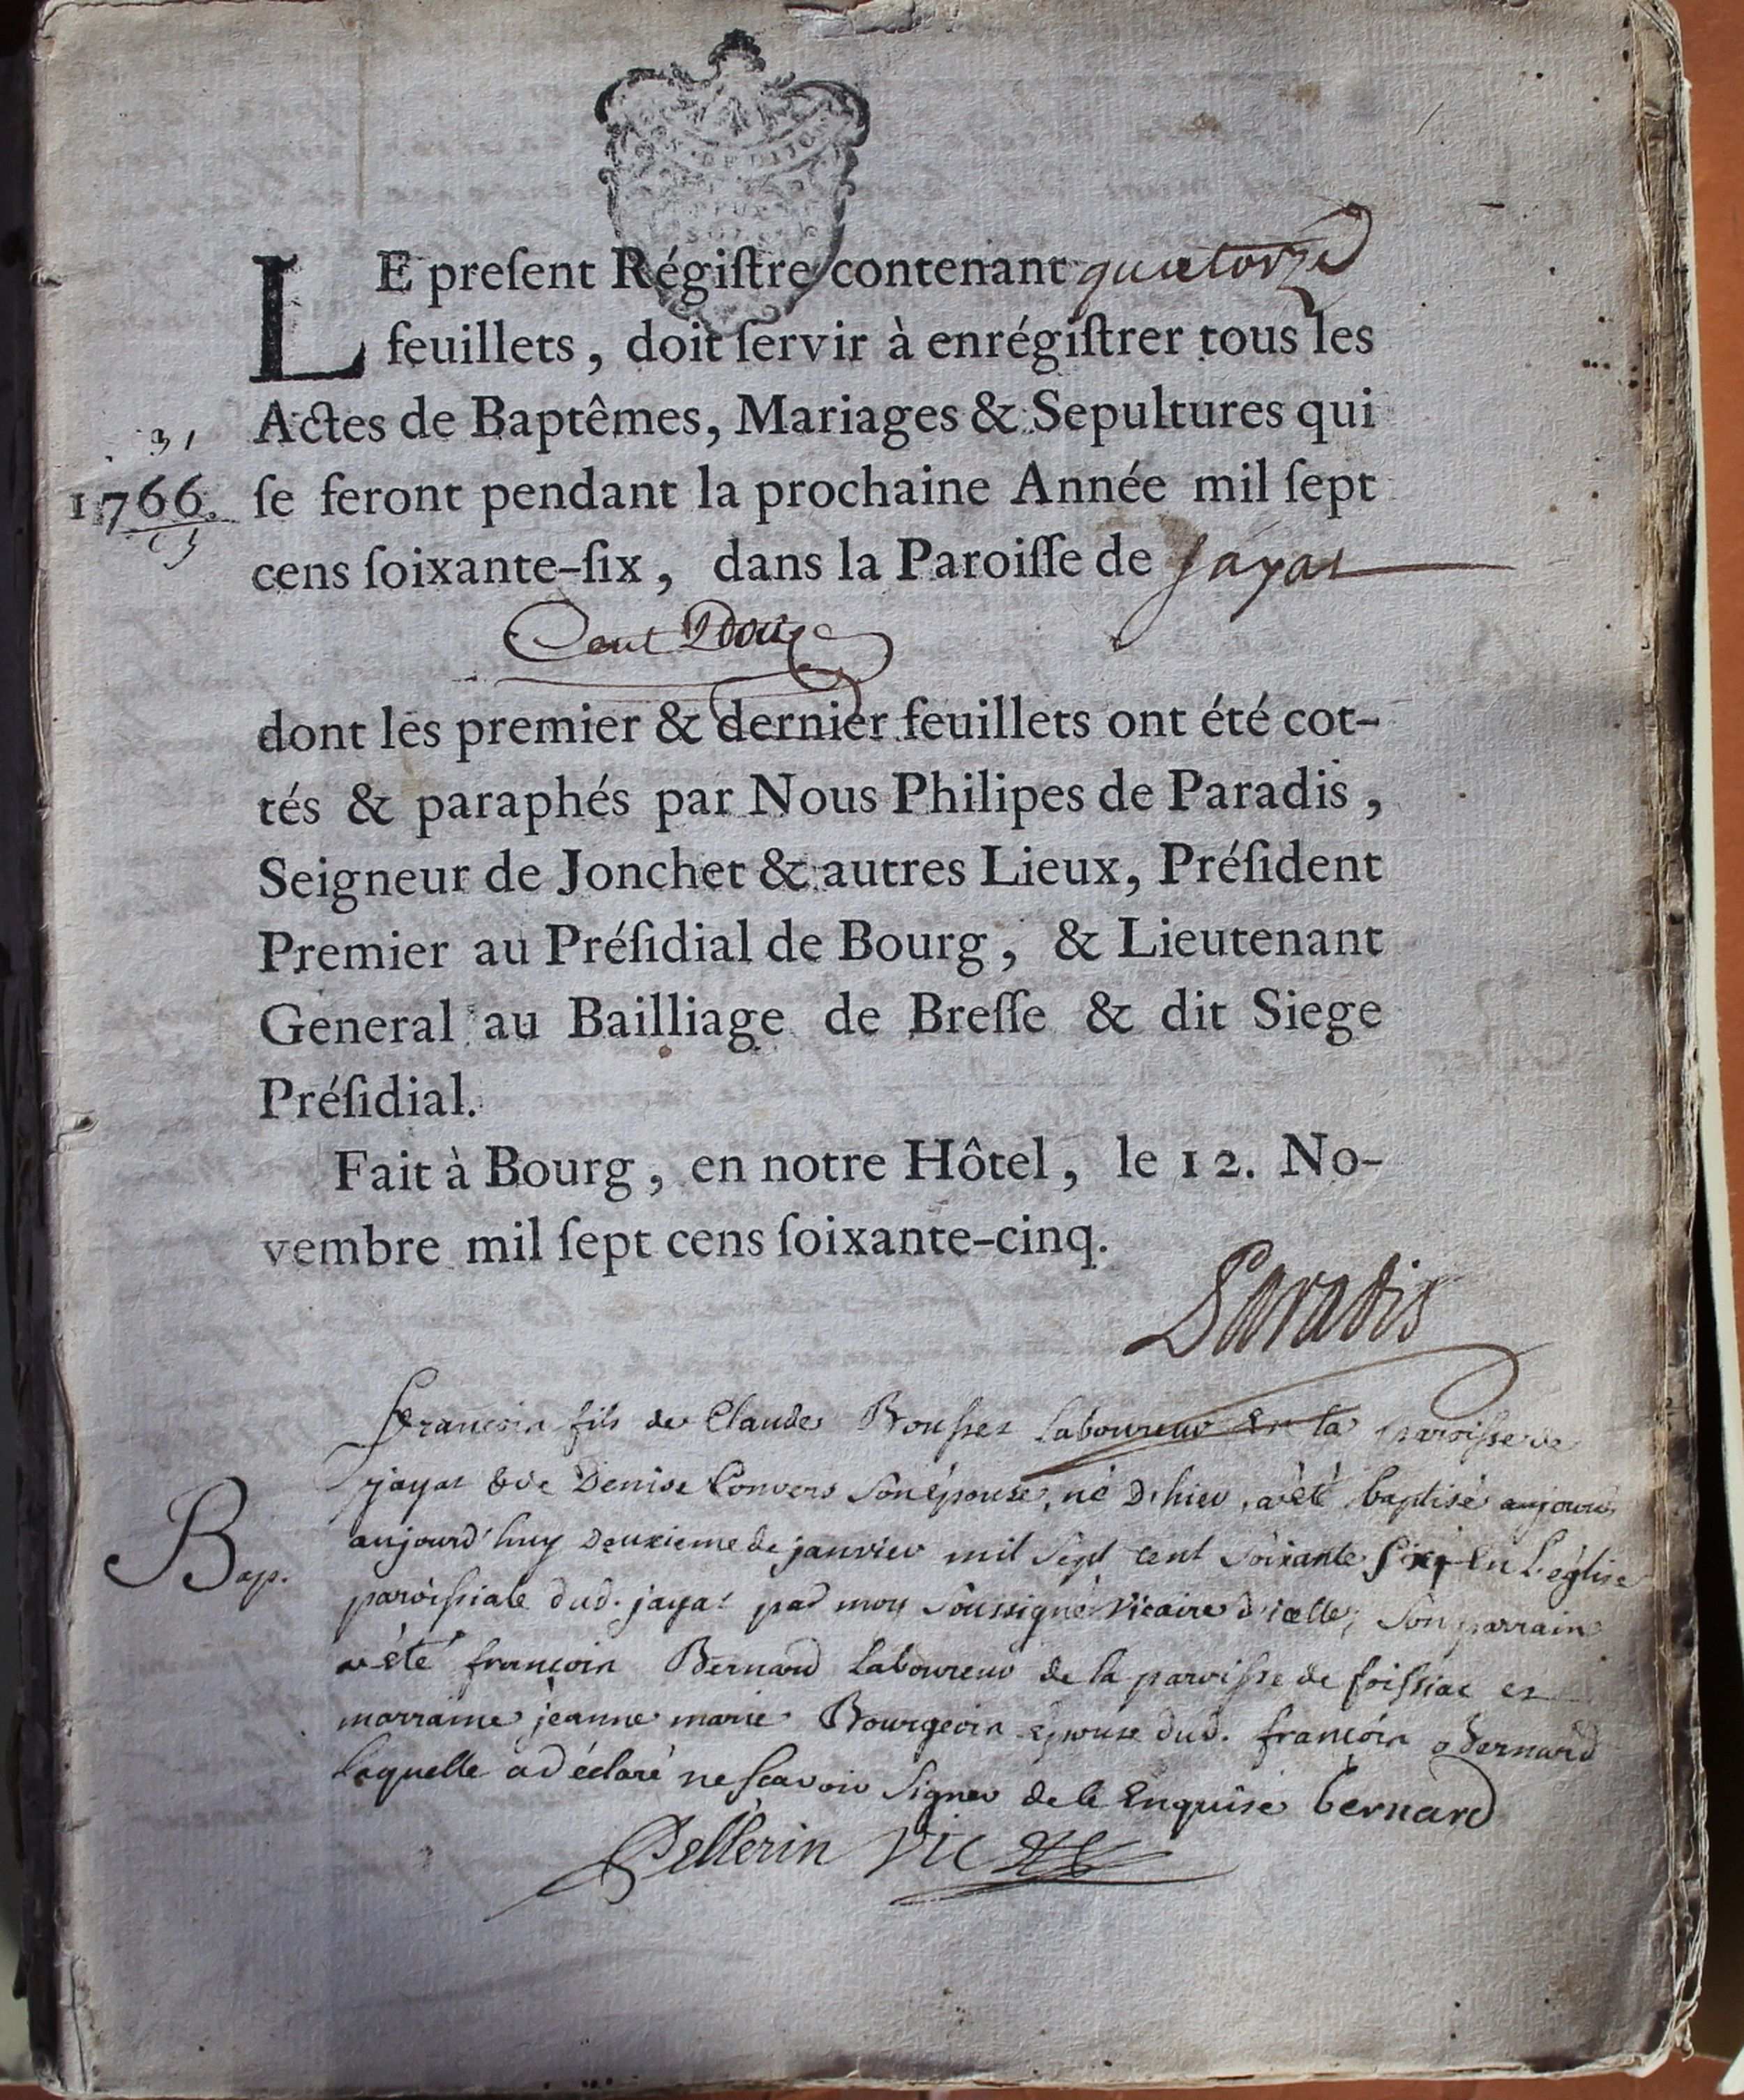 DE DIJON
LE preſent Régiſtre contenant quatorze
feuillets, doit ſervir à enrégiſtrer tous les
Actes de Baptêmes, Mariages & Sepultures qui
31
1766. ſe feront pendant la prochaine Année mil ſept
cens ſoixante-ſix, dans la Paroiſſe de Jayat
Cent Douze
dont les premier & dernier feuillets ont été cot-
tés & paraphés par Nous Philipes de Paradis,
Seigneur de Jonchet & autres Lieux, Préſident
Premier au Préſidial de Bourg, & Lieutenant
General au Bailliage de Breſſe & dit Siege
Préſidial.
Fait à Bourg, en notre Hôtel, le 12. No-
vembre mil ſept cens ſoixante-cinq.
Paradis
françois fils de Claude Rousset laboureur en la paroisse de
jayat & de Denise Convers son épouse, né d'hier, a été baptisé aujourd
Bap. aujourd'huy deuxieme de janvier mil sept cent soixante six en l'église
paroissiale dud. jayat par moy soussigné vicaire d'icelle, son parrain
a été françois Bernard laboureur de la paroisse de foissiat et
marraine jeanne marie Bourgeois épouse dud. françois Bernard
laquelle a déclaré ne scavoir signer de ce enquise bernard
Pellerin vic